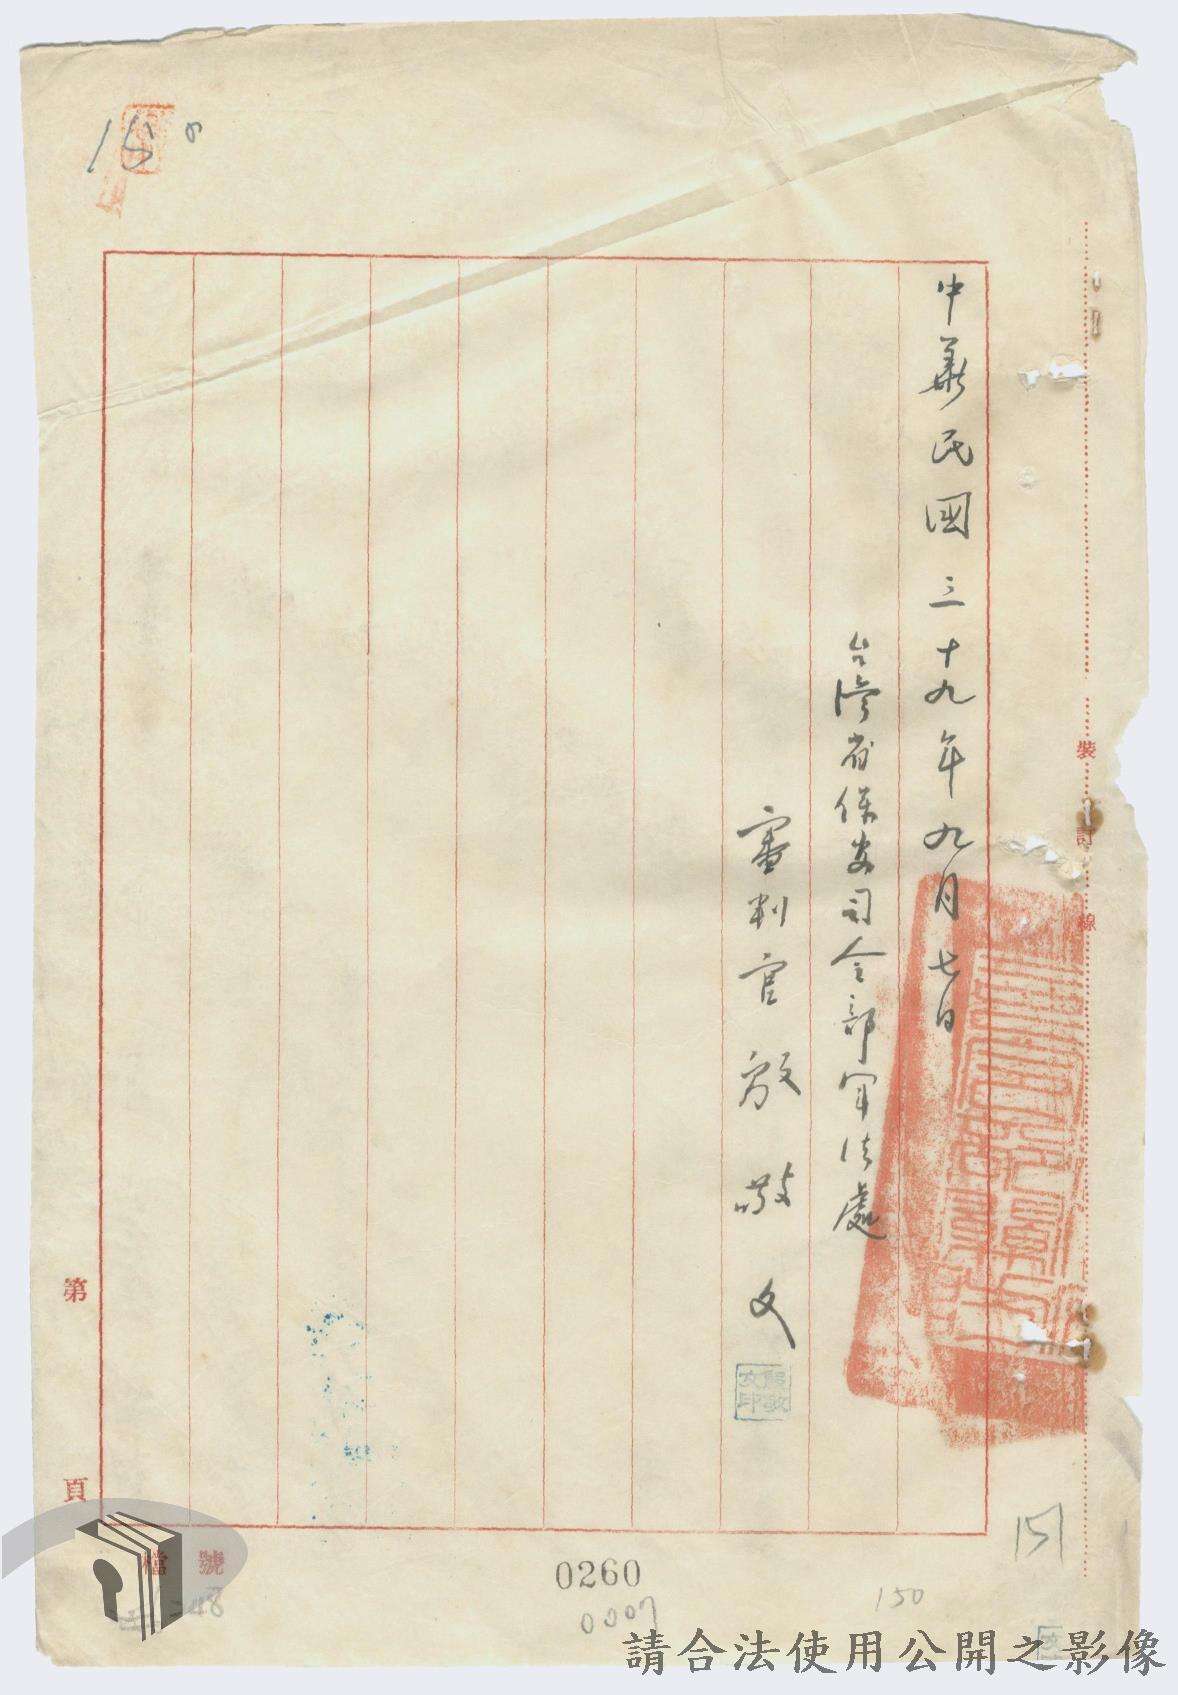 中華民國三十九年九月七日
台灣省保安司令部軍法處
審判官殷敬文
裝訂線
第頁
檔號
248
0260
0007
150
151
150
請合法使用公開之影像